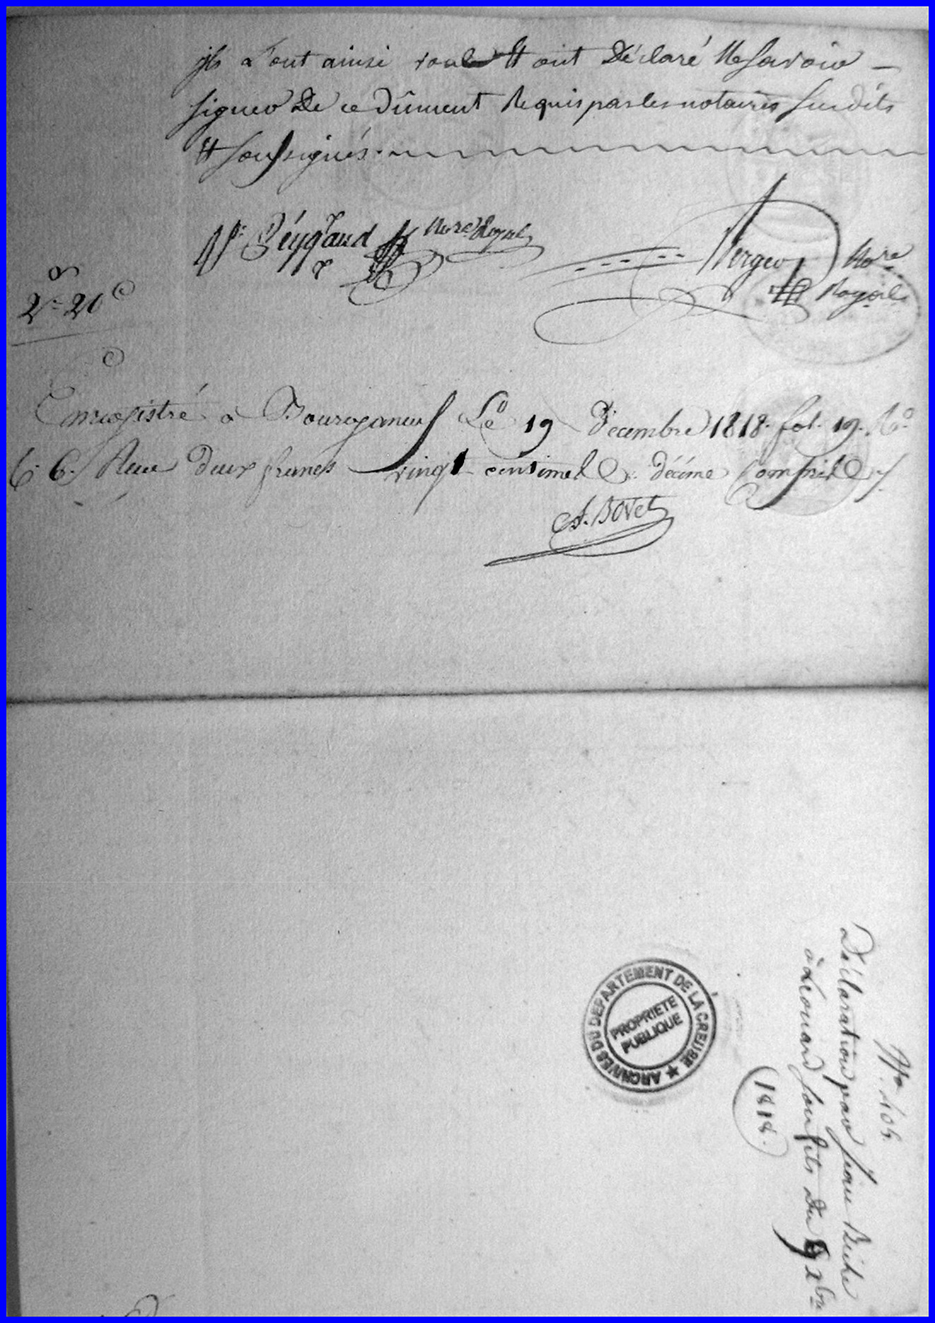 ils L'ont ainsi voulu Et ont Déclaré Ne Savoir –
signer De ce Dûment Requis par les notaires Susdits
Et Soussignés.
Peyraud Nore Royal
Verger Nore
Royal
2f- 20c
Enregistré à Bourganeuf Le 19 Décembre 1818. fol. 19. Ro
C. 6. Reçu deux francs vingt centimes décime Compris
A. Bovet
No. 405
Déclaration par Jean
à Léonard Son fils Du 9 Xbre
1818.
ARCHIVES DU DEPARTEMENT DE LA CREUSE
PROPRIETE
PUBLIQUE